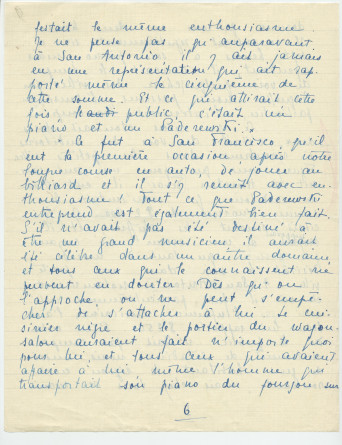 festait le même enthousiasme
Je ne pense pas qu'auparavant
à San Antonio il y ait jamais
eu une représentation qui ait rap-
porté même le cinquième de
cette somme. Et ce qui attirait cette
fois public, c'était un
piano et un Paderewski.
Ce fut à San Francisco, qu'il
eut la première occasion après notre
longue course en auto, de jouer au
billiard et il s'y remit avec en-
thousiasme! Tout ce que Paderewski
entreprend est également bien fait.
S'il n'avait pas été destiné à
être un grand musicien, il aurait
été célèbre dans un autre domaine
et tous ceux qui le connaissent ne
peuvent en douter. Dès qu'on
l'approche, on ne peut s'empê-
cher de s'attacher à lui. Le cui-
sinier nègre et le portier du wagon-
salon auraient fait n'importe quoi
pour lui et tous ceux qui avaient
affaire à lui même l'homme qui
transportait son piano du fourgon sur
6